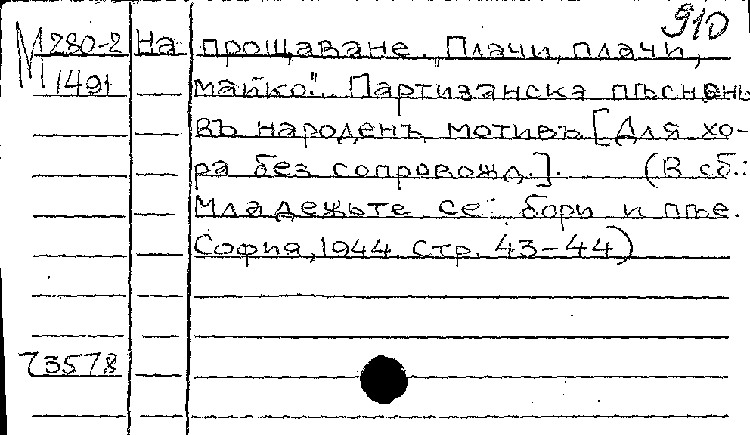 910
М280-2 На прощаване. "Плачи, плачи,
М1491 майко". Партизанска пѣснень
въ народенъ мотивъ [Для хо-
ра без сопровожд.]. (В сб.:
Младежьте се бори и пѣе.
София, 1944. Стр. 43-44)
73578